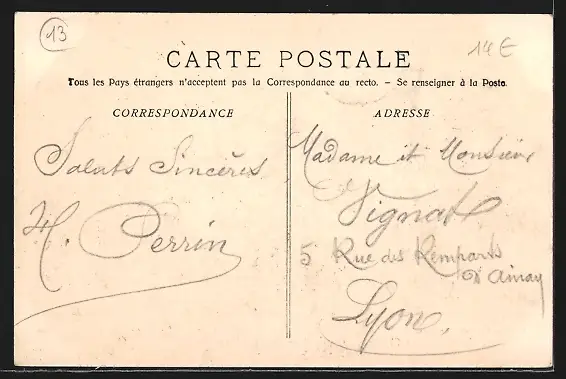 13
14€
CARTE POSTALE
Tous les Pays étrangers n'acceptent pas la Correspondance au recto. - Se renseigner à la Poste.
CORRESPONDANCE
Saluts Sincères
H. Perrin
ADRESSE
Madame et Monsieur
Vignat
5 Rue des Remparts
d'Ainay
Lyon.